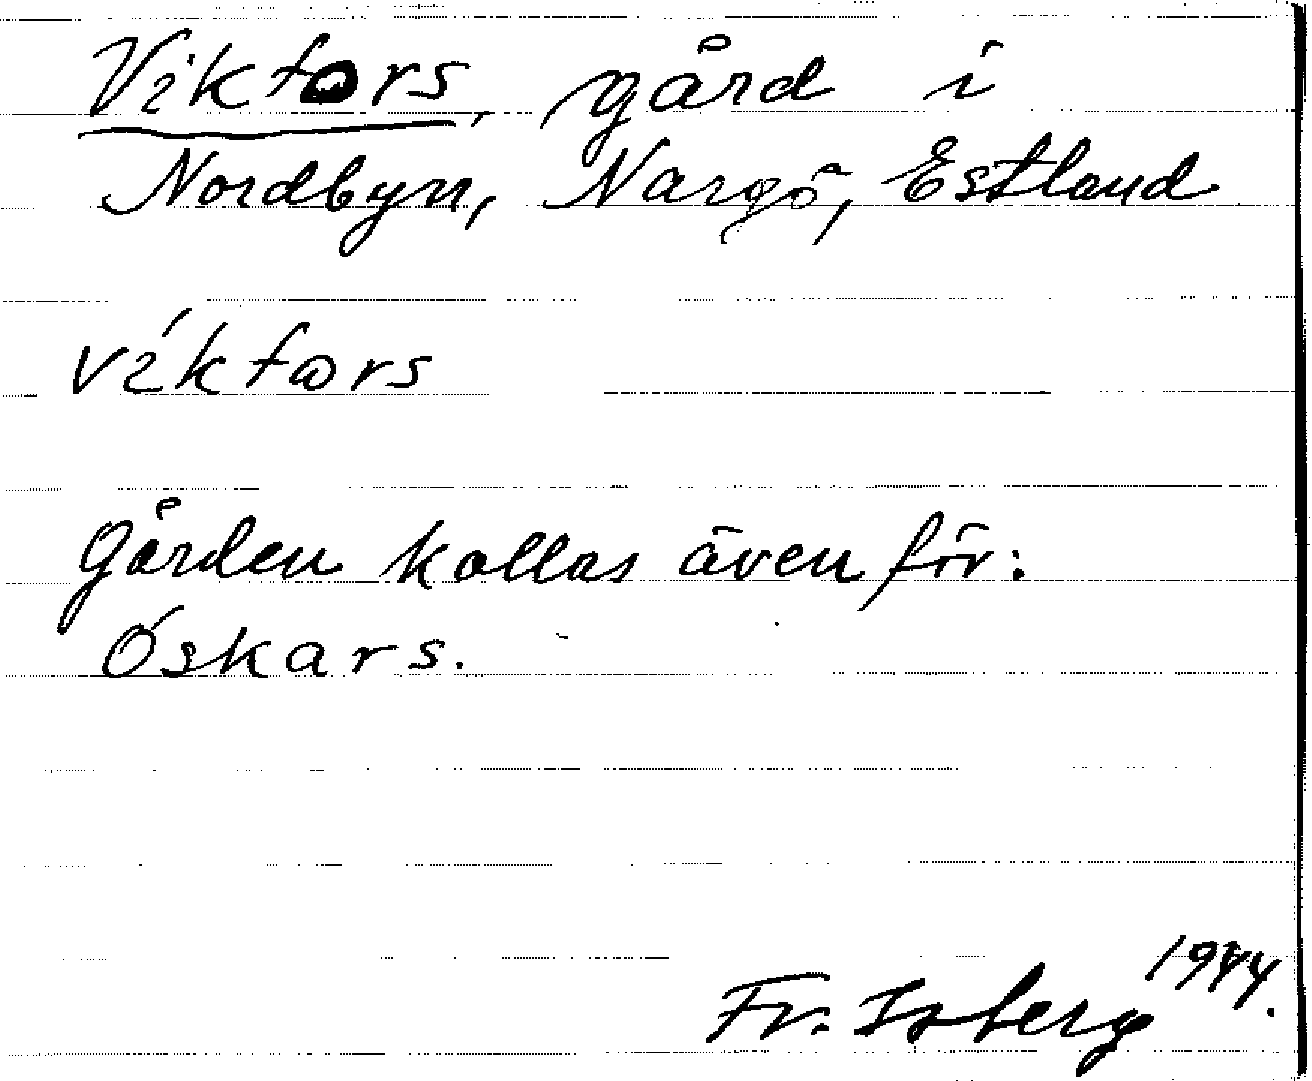 Viktors, gård i
Nordbyn, Nargö, Estland
víktors
Gården kallas även för:
Óskars.
Fr. Isberg 1944.